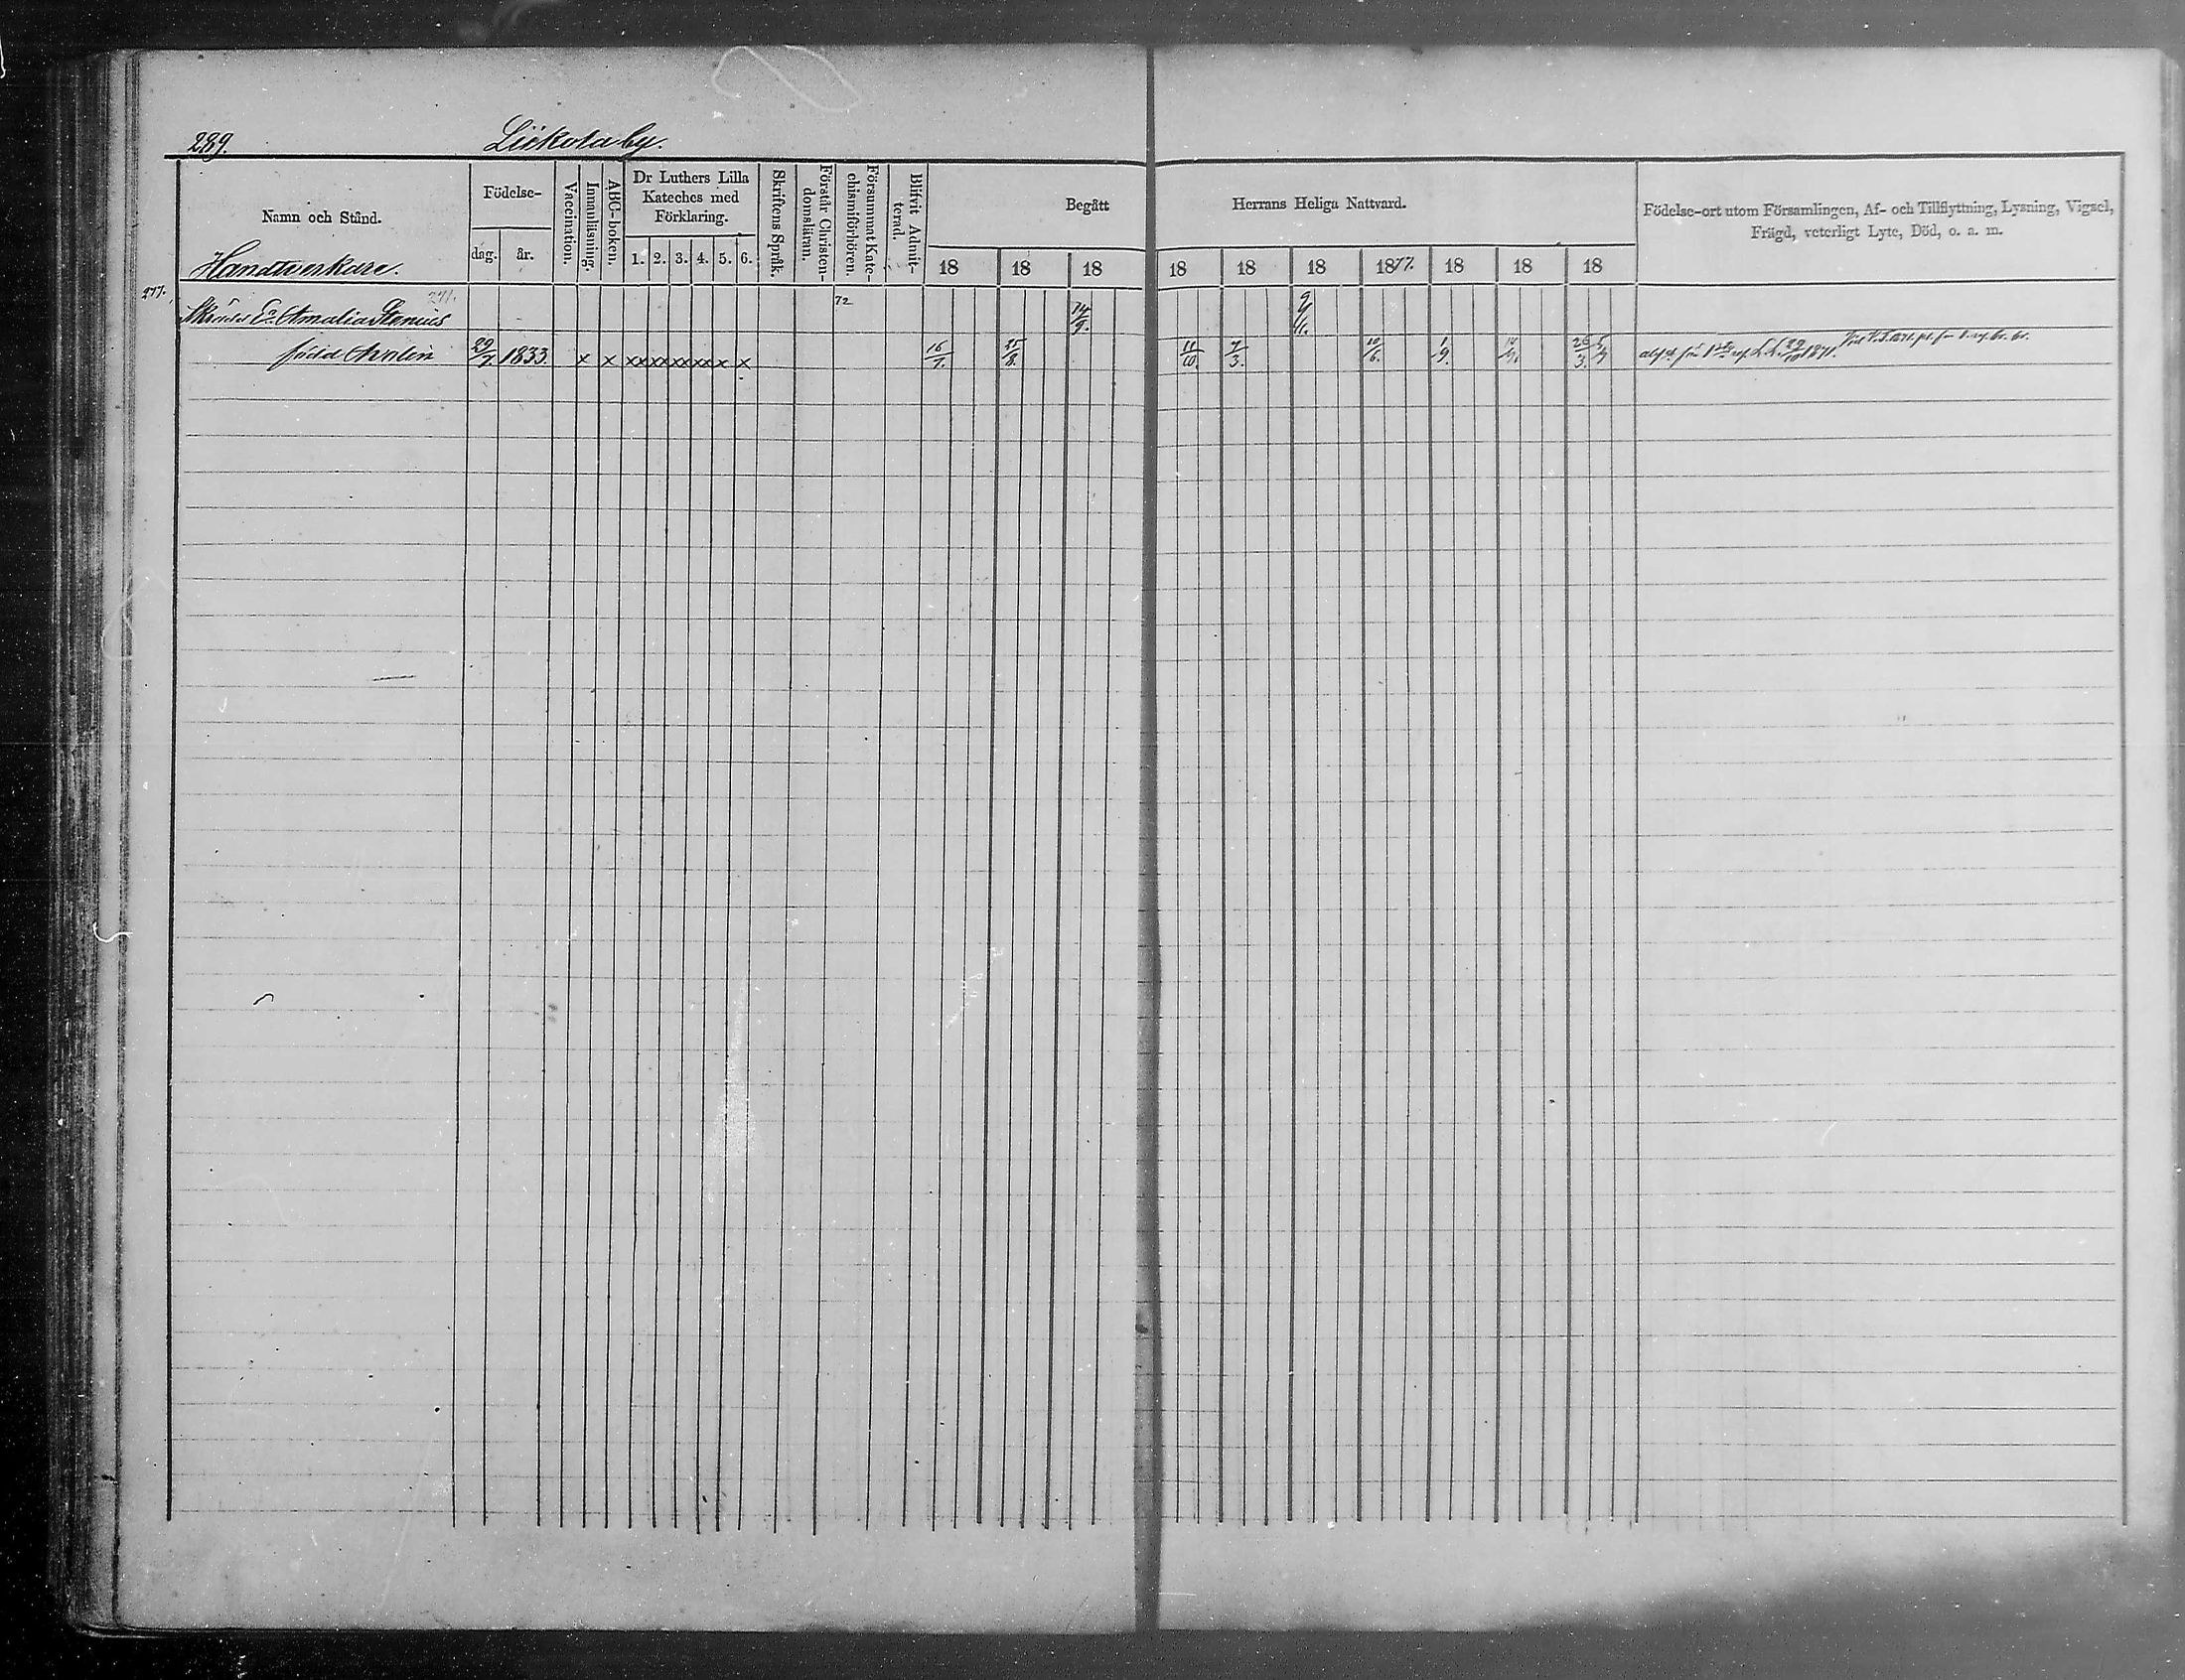 289. Liikola by.
Namn och Stånd.
Handtverkare.
Födelse-
dag. år.
Vaccination.
Innanläsning.
ABC-boken.
Dr Luthers Lilla
Kateches med
Förklaring.
1. 2. 3. 4. 5. 6.
Skriftens Språk.
Förstår Christen-
domsläran.
Försummat Kate-
chismiförhören.
Blifvit Admit-
terad.
Begått Herrans Heliga Nattvard.
18 18 18 18 18 18 1877. 18 18 18
Födelse-ort utom Församlingen, Af- och Tillflyttning, Lysning, Vigsel,
Frägd, veterligt Lyte, Död, o. a. m.
277. Amalia Stenius 271. 72 14/9. 9/11.
född 29/7. 1833. x x x x x x x x x x x 16/7. 25/8. 11/10. 4/3. 10/6. 1/9. 25/3. 29/10 1871.